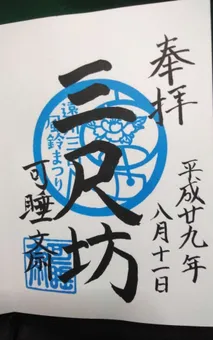 奉拝
平成廿九年
八月十一日
三尺坊
遠州三山
風鈴まつり
可睡斎